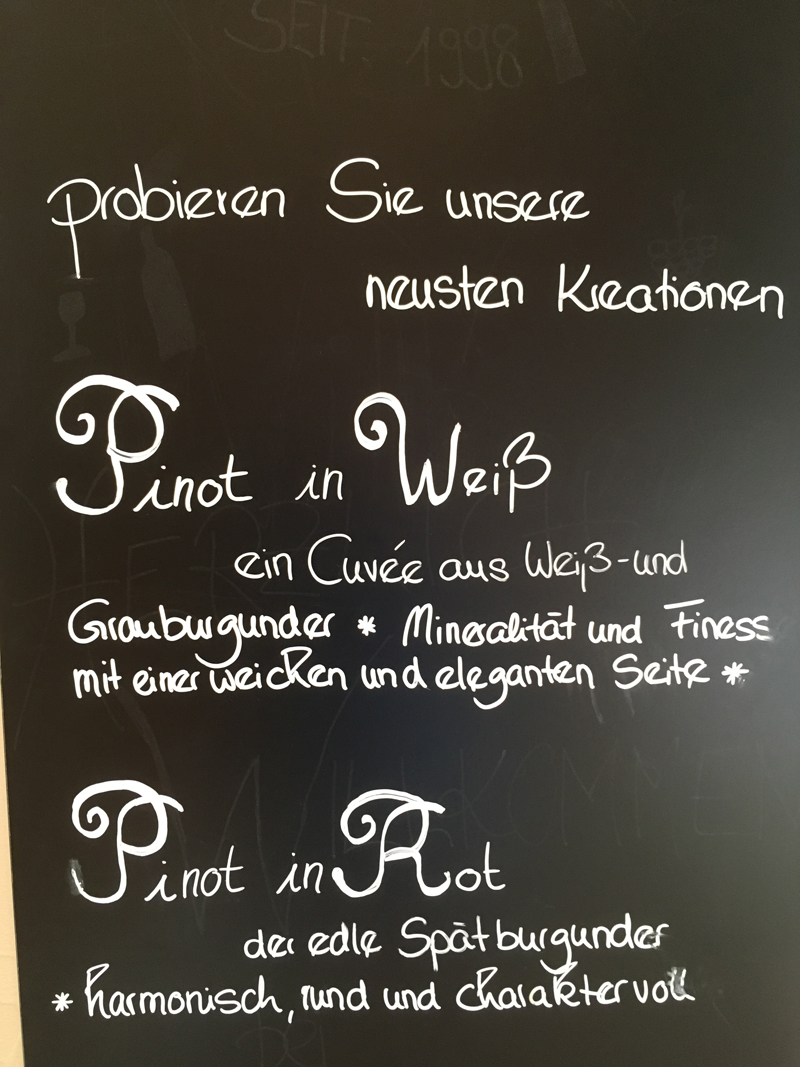 SEIT 1998
probieren Sie unsere
neusten Kreationen
Pinot in Weiß
ein Cuvée aus Weiß-und
Grauburgunder * Mineralität und Finess
mit einer weichen und eleganten Seite *
WILLKOMMEN
Pinot in Rot
der edle Spätburgunder
* harmonisch, rund und charaktervoll